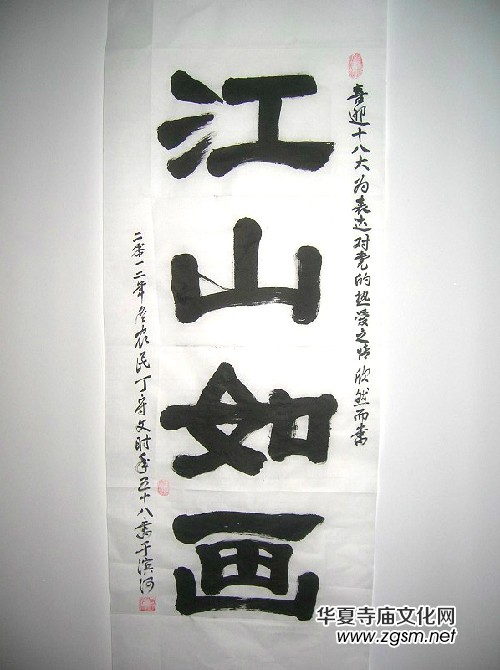 喜迎十八大为表达对党的热爱之情欣然而书
江山如画
二零一二年老农民丁奇文时年五十八书于滨河
华夏寺庙文化网
www.zgsm.net